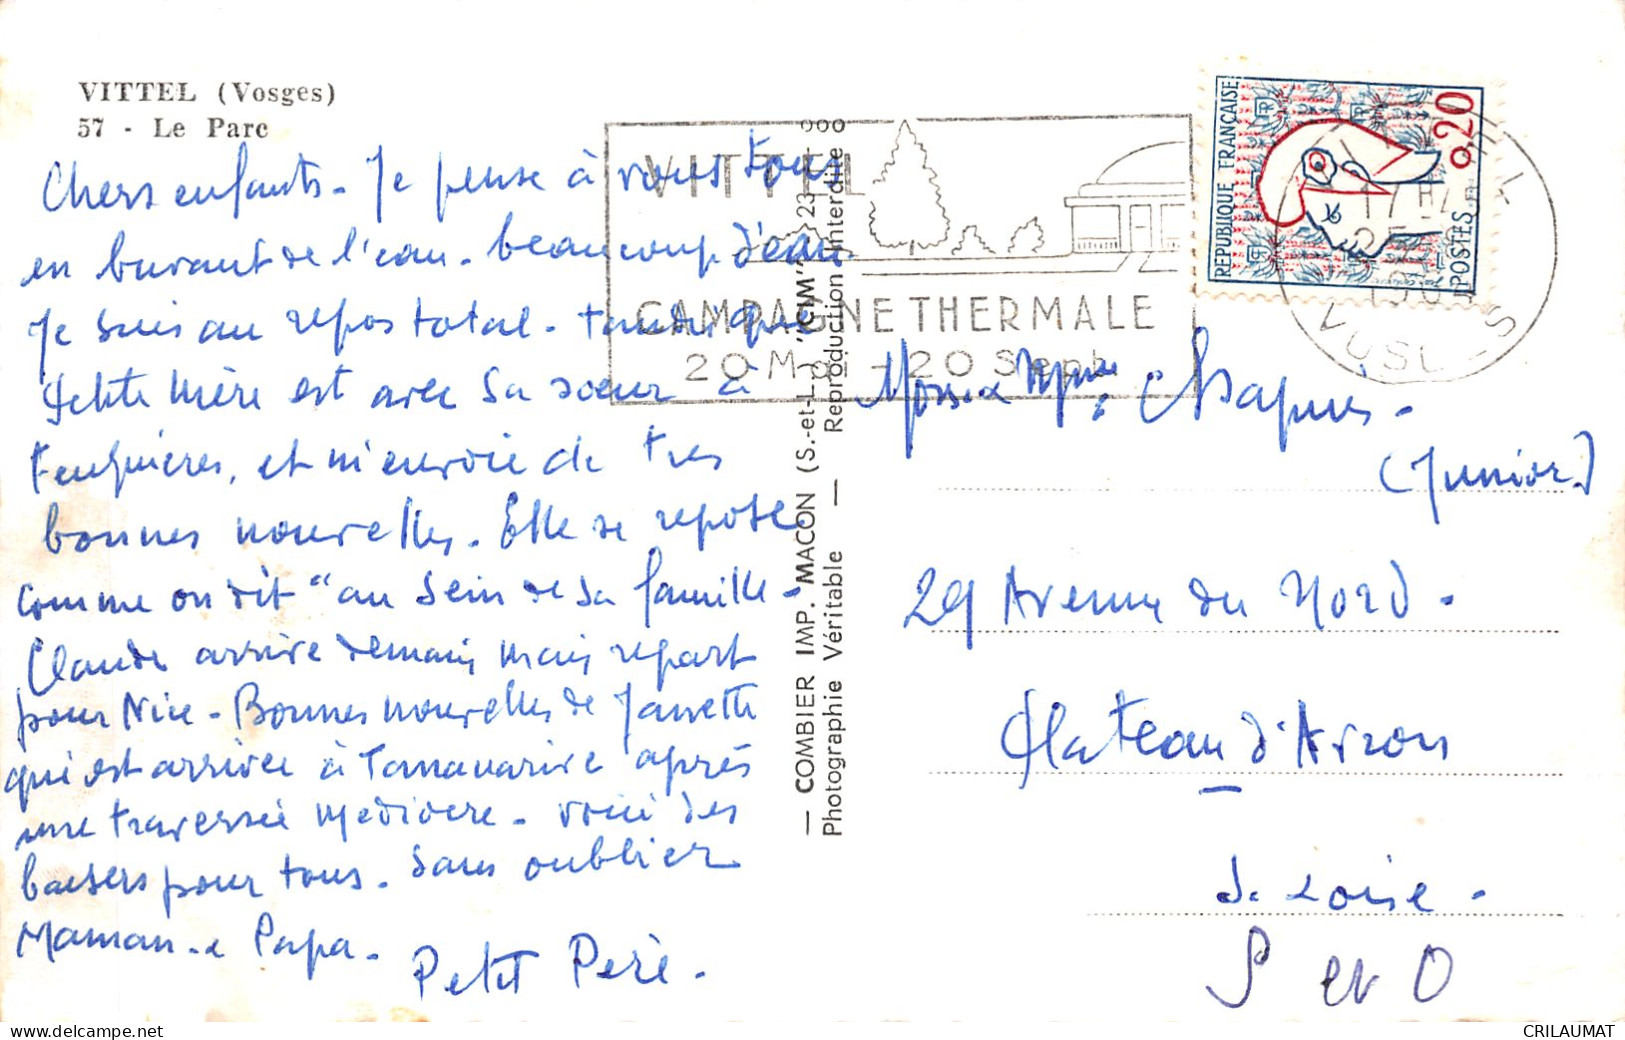 VITTEL (Vosges)
57 - Le Parc
Chers enfants - Je pense à vous tous
en buvant de l'eau - beaucoup d'eau.
Je suis au repos total - tandis que
Petite Mère est avec sa sœur à
et m'envoie de très
bonnes nouvelles. Elle se repose
comme on dit "au sein de sa famille -
Claude arrive demain mais repart
pour Nice - Bonnes nouvelles de
qui est arrivée à Tananarive après
une traversée médiocre - voici des
baisers pour tous. Sans oublier
Maman - et Papa -
Petit Père -
— COMBIER IMP. MACON (S.-et-L.) "CIM"
Photographie Véritable — Reproduction Interdite
VITTEL
CAMPAGNE THERMALE
20 Mai - 20 Sept
REPUBLIQUE FRANÇAISE
0,20
POSTES
VITTEL
VOSGES
(Junior)
29 Avenue du Nord -
Plateau d'
S et O
CRILAUMAT
delcampe.net